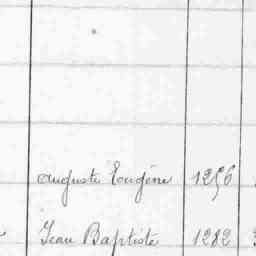 Auguste Eugène 1256
Jean Baptiste 1282